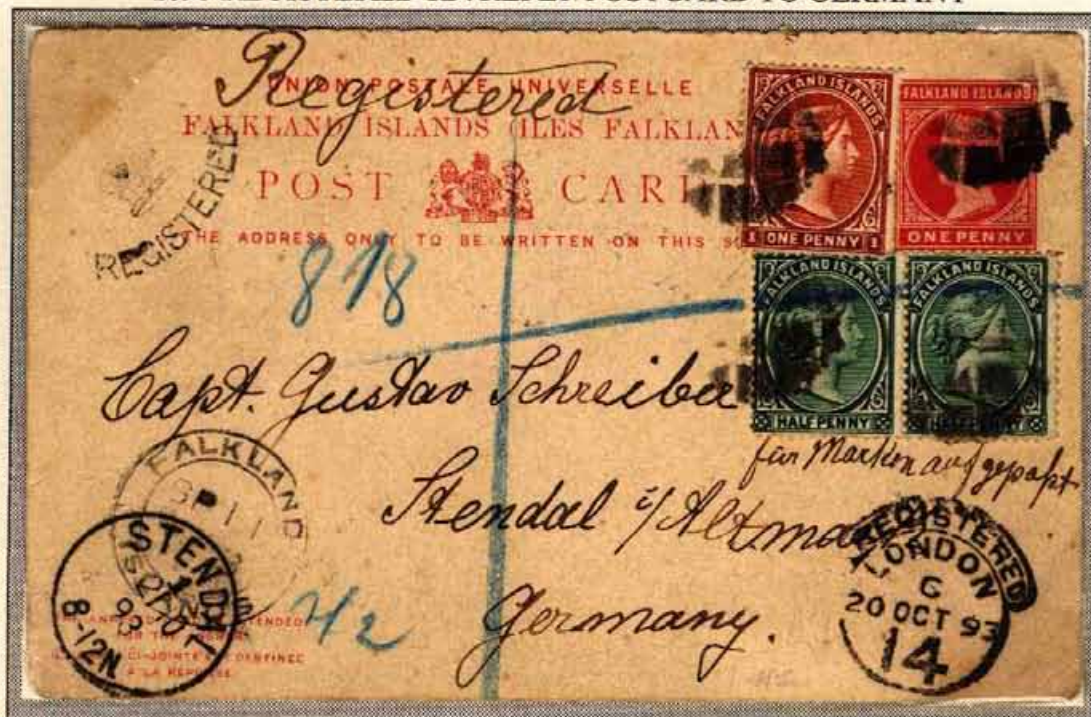 POST CARD TO GERMANY
Registered
UNION POSTALE UNIVERSELLE
FALKLAND ISLANDS (ILES FALKLAN
POST CAR
THE ADDRESS ONLY TO BE WRITTEN ON THIS
REGISTERED
FALKLAND ISLANDS
1 ONE PENNY 1
FALKLAND ISLANDS
ONE PENNY
818
FALKLAND ISLANDS
HALFPENNY
FALKLAND ISLANDS
HALFPENNY
Capt. Gustav Schreiber
für Marken aufgepaßt
Stendal i/Altmark
Germany.
FALKLAND
STENDAL
93
8-12N
REGISTERED
LONDON
G
20 OCT 93
14
CI-JOINTE EST DESTINEE
A LA REPONSE